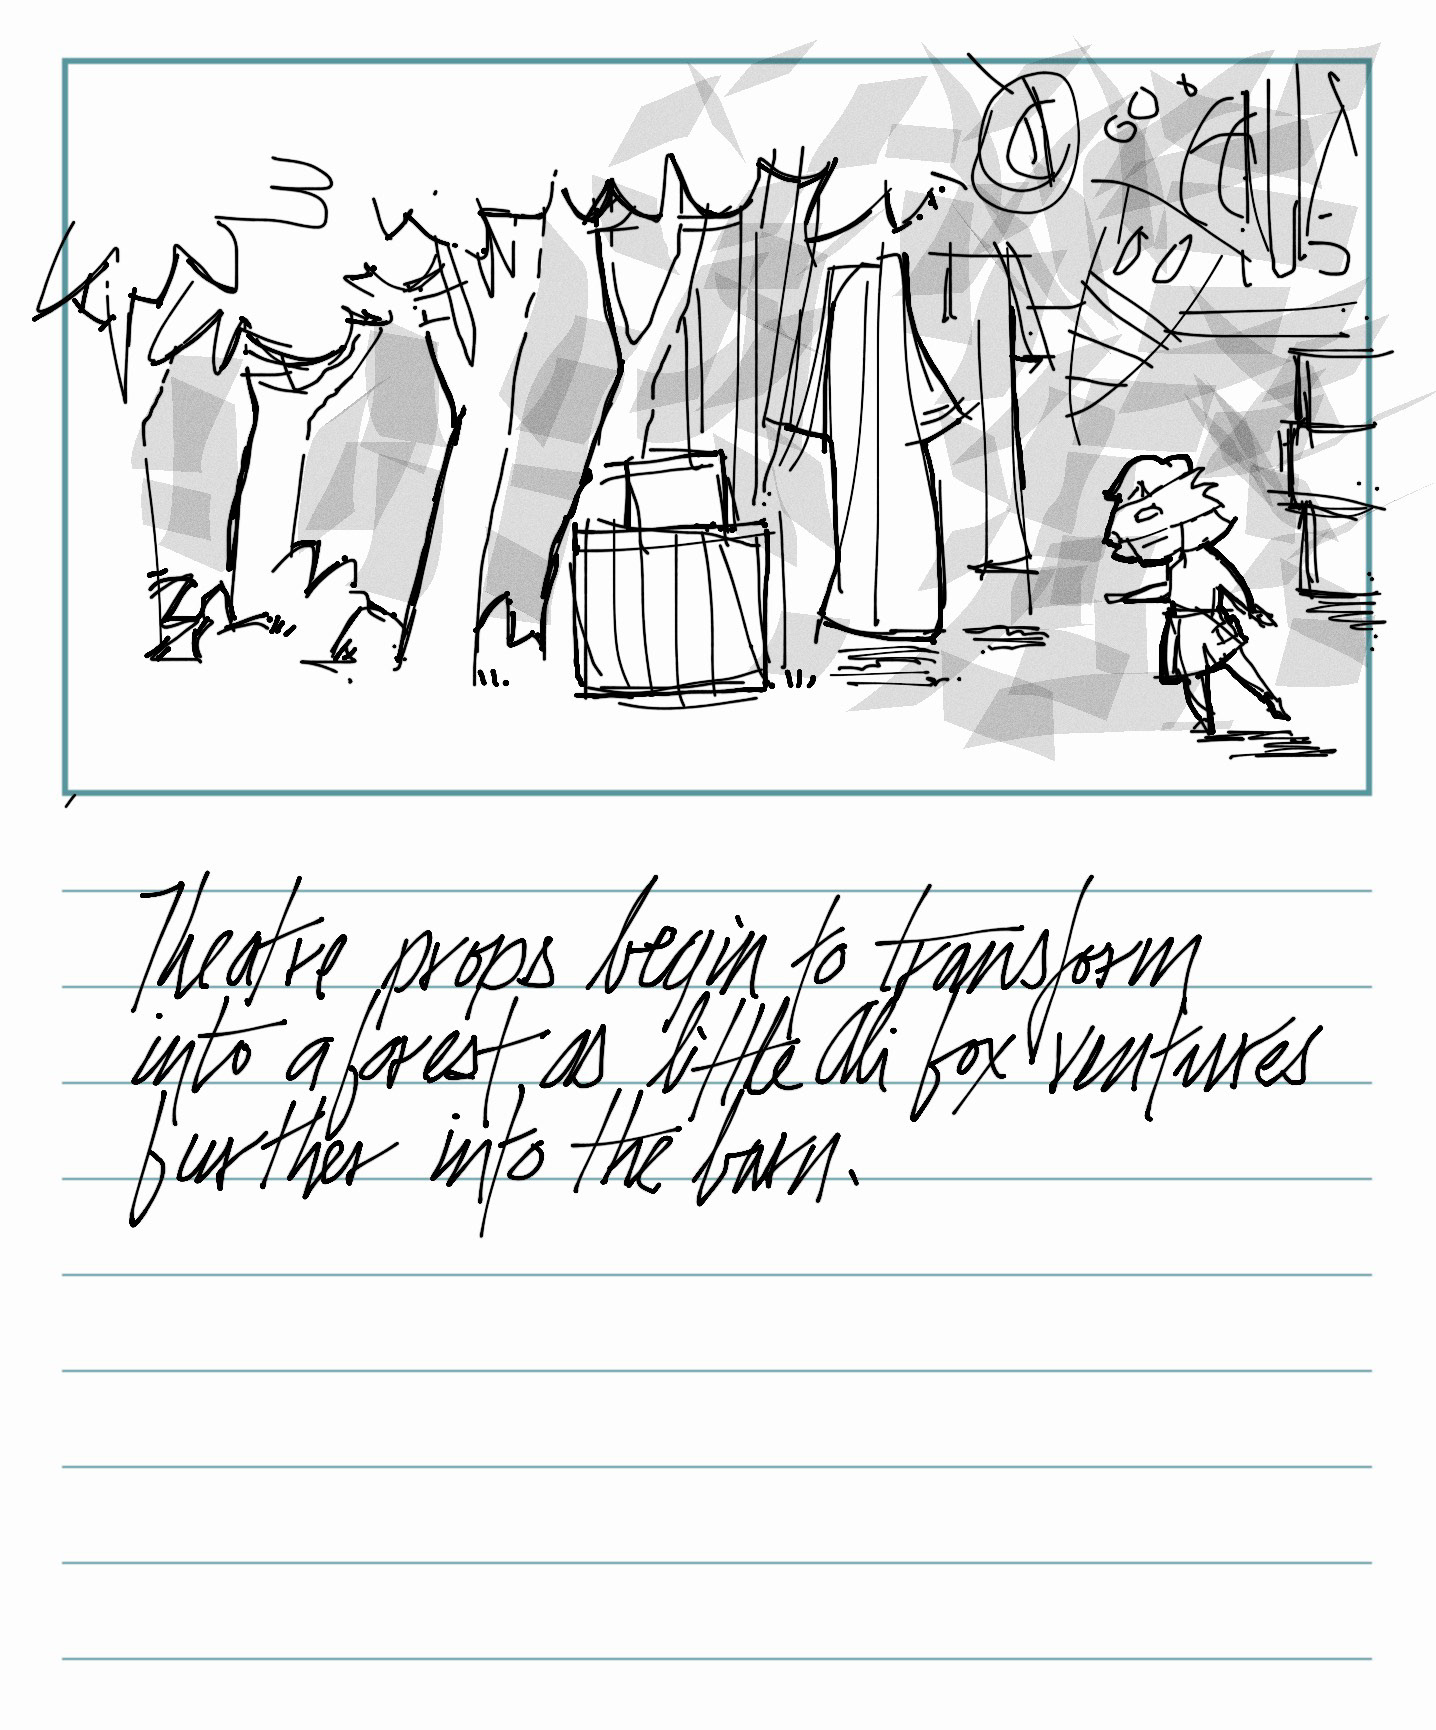 Theatre props begin to transform
into a forest as little Ali fox ventures
further into the barn.